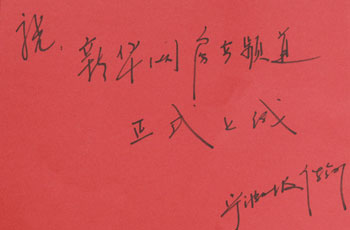 祝.新华网房产频道
正式上线